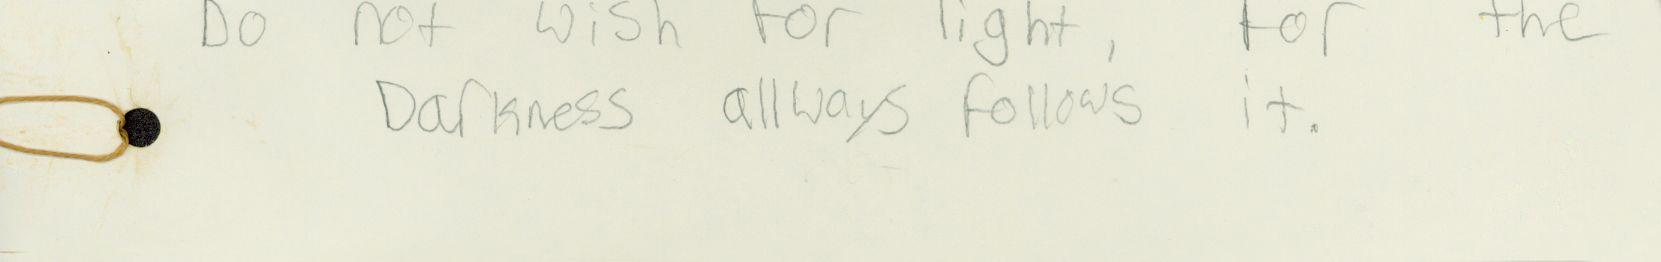 Do not wish for light, for the
Darkness allways follows it.